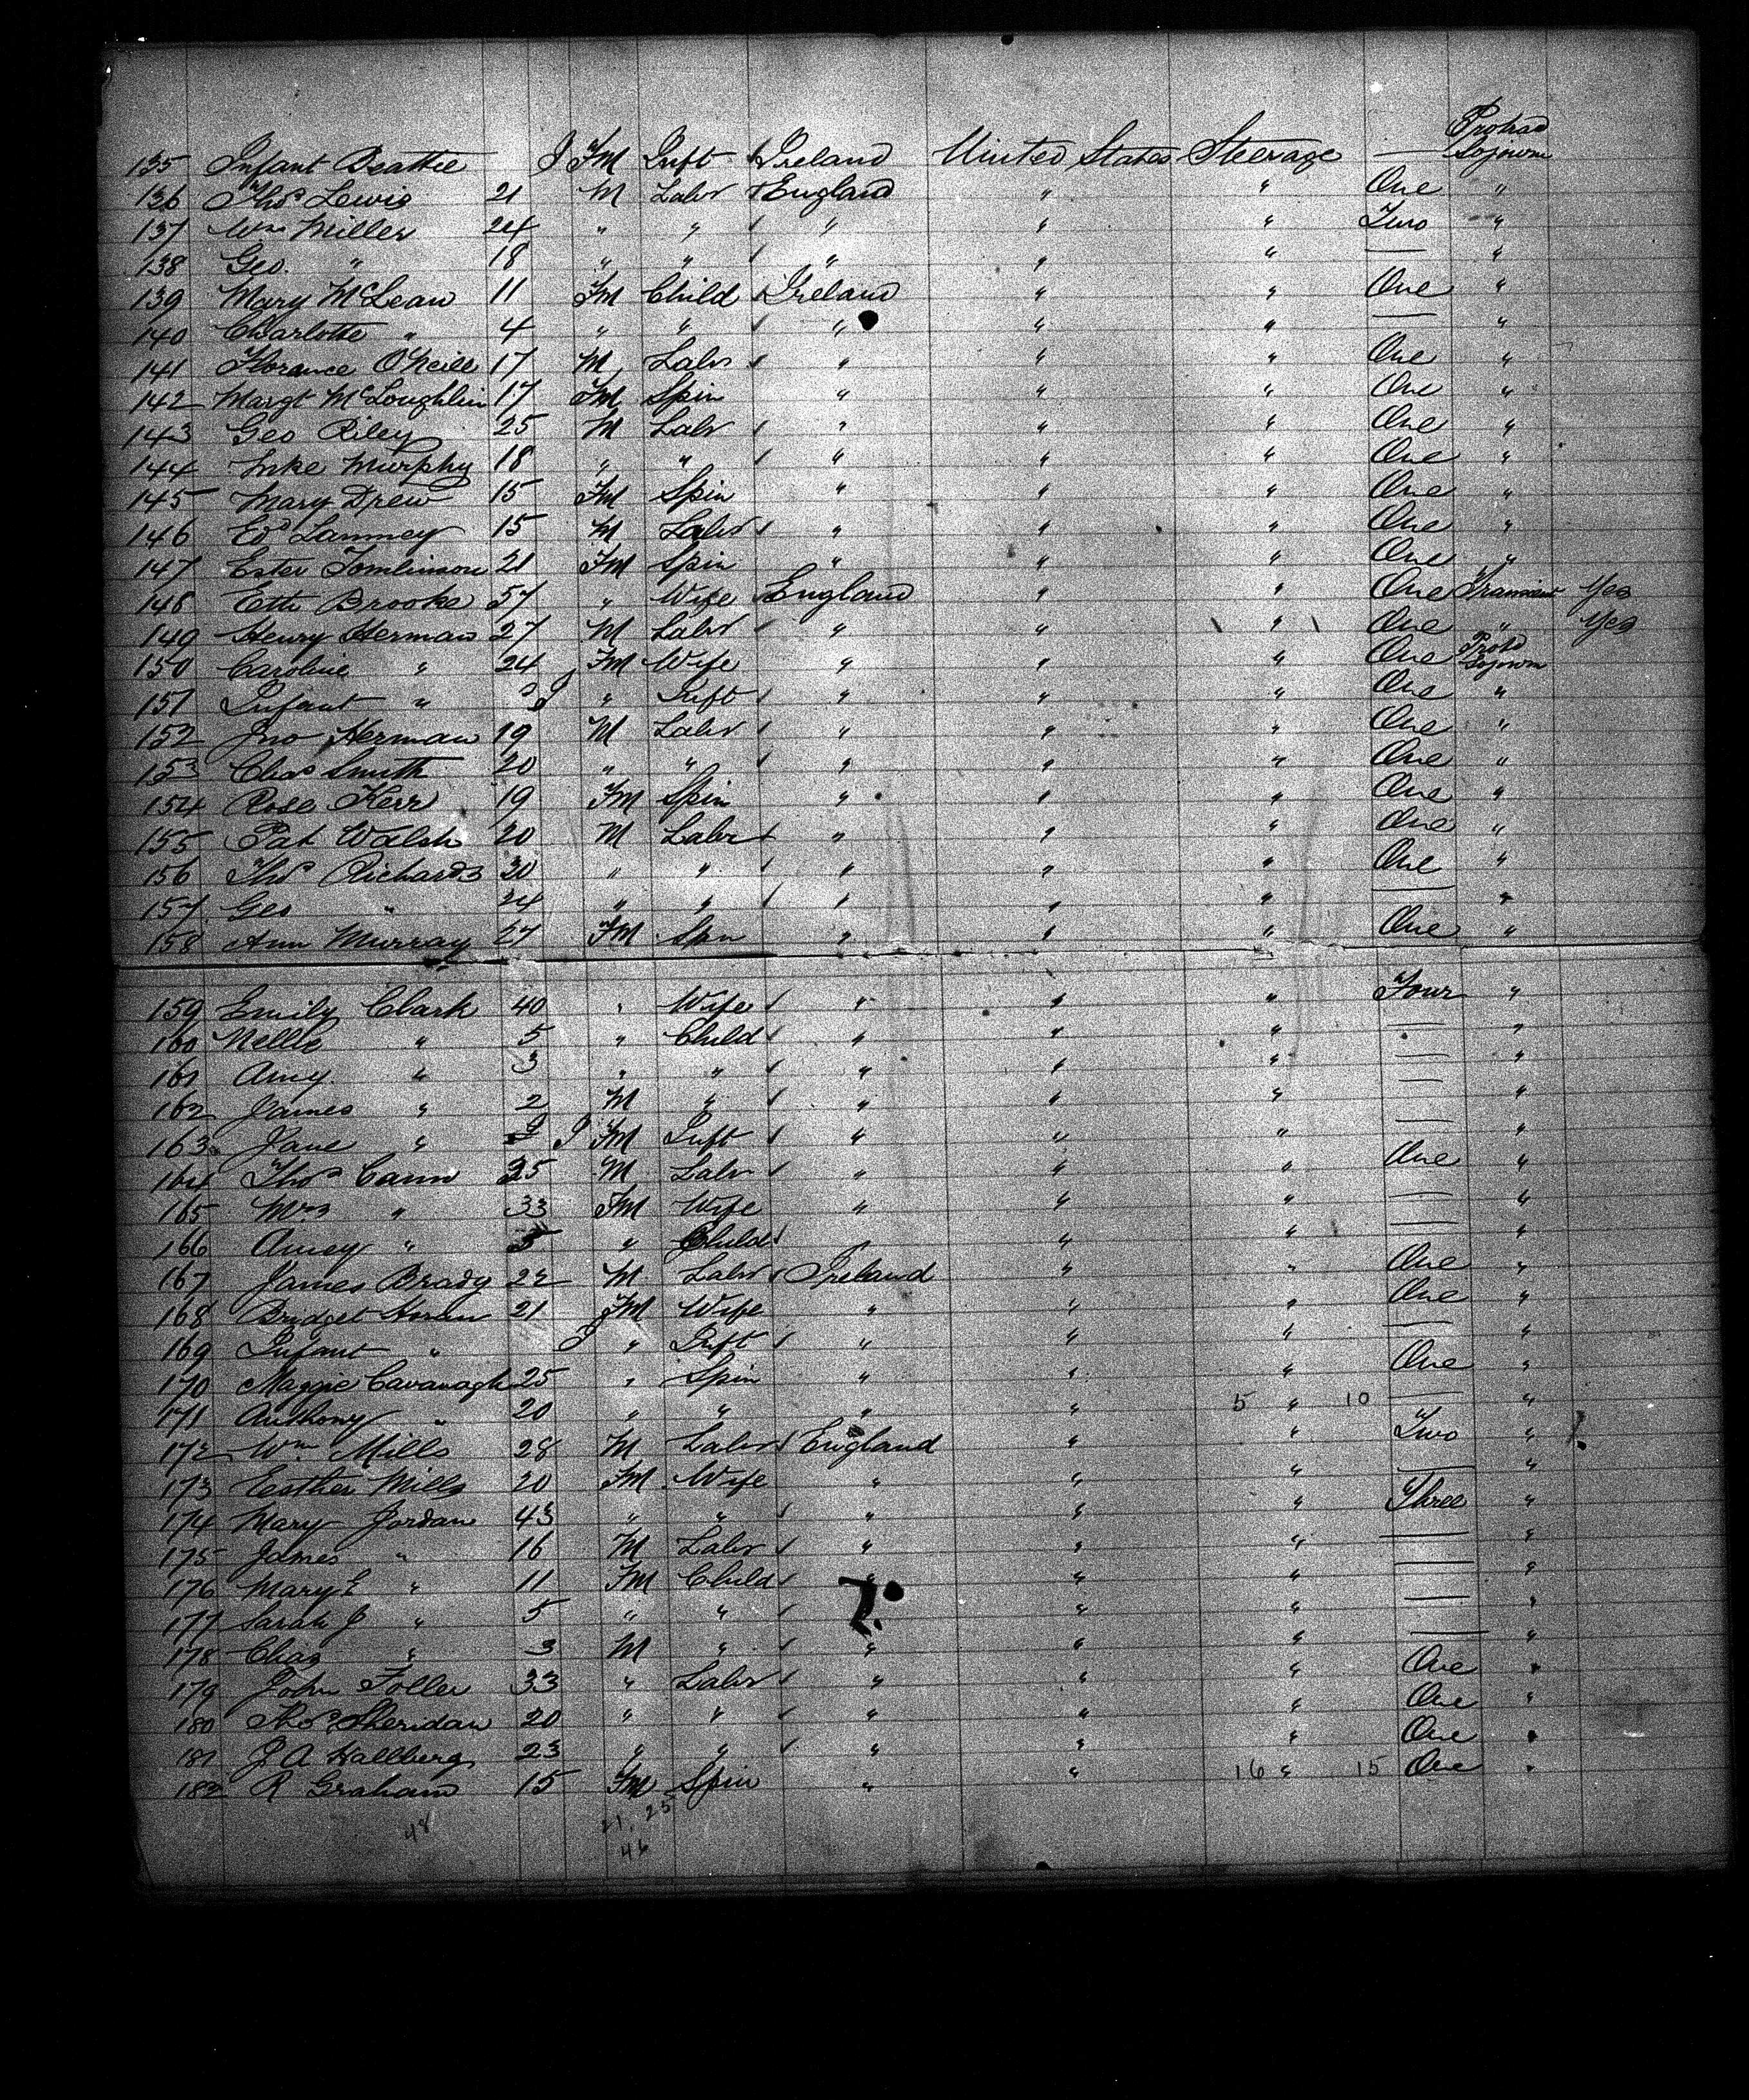 Protrad
135 Infant Beattie I FM Inft Ireland United States Steerage — Sojourn
136 Thos Lewis 21 M Labr England " " One "
137 Wm Miller 24 " " " " " Two "
138 Geo. " 18 " " " " " — "
139 Mary McLean 11 FM Child Ireland " " One "
140 Charlotte " 4 " " " " " — "
141 Florance O'Neill 17 M Labr " " " One "
142 Margt McLoughlin 17 FM Spin " " " One "
143 Geo Riley 25 M Labr " " " One "
144 Mike Murphy 18 " " " " " One "
145 Mary Drew 15 FM Spin " " " One "
146 Ed Lamney 15 M Labr " " " One "
147 Ester Tomlinson 21 FM Spin " " " One "
148 Brooke 57 " Wife England " " One Transient Yes
149 Henry Herman 27 M Labr " " " One " Yes
150 Caroline " 24 FM Wife " " " One Protd Sojourn
151 Infant " I " Inft " " " One "
152 Jno Herman 19 M Labr " " " One "
153 Chas Smith 20 " " " " " One "
154 Rose Kerr 19 FM Spin " " " One "
155 Pat Walsh 20 M Labr " " " One "
156 Thos Richards 30 " " " " " One "
157 Geo " 24 " " " " " — "
158 Ann Murray 27 FM Spn " " " One "
159 Emily Clark 40 " Wife " " " Four "
160 Nellie " 5 " Child " " " — "
161 Amy. " 3 " " " " " — "
162 James " 2 M " " " " — "
163 Jane " I FM Inft " " " — "
164 Thos Cann 35 M Labr " " " One "
165 Mrs " 33 FM Wife " " " — "
166 Amey " 5 " Child " " " — "
167 James Brady 22 M Labr Ireland " " One "
168 Bridget 21 FM Wife " " " One "
169 Infant " I " Inft " " " — "
170 Maggie Cavanagh 25 " Spin " " " One "
171 Anthony " 20 " " " " 5 " 10 — "
172 Wm Mills 28 M Labr England " " Two "
173 Esther Mills 20 FM Wife " " " — "
174 Mary Jordan 43 " " " " " Three "
175 James " 16 M Labr " " " — "
176 Mary E " 11 FM Child " " " — "
177 Sarah J " 5 " " " " " — "
178 Chas " 3 M " " " " — "
179 John Foller 33 " Labr " " " One "
180 Thos Sheridan 20 " " " " " One "
181 J A Hallberg 23 " " " " " One "
182 R Graham 15 FM Spin " " 16 " 15 One "
48 21. 25
46